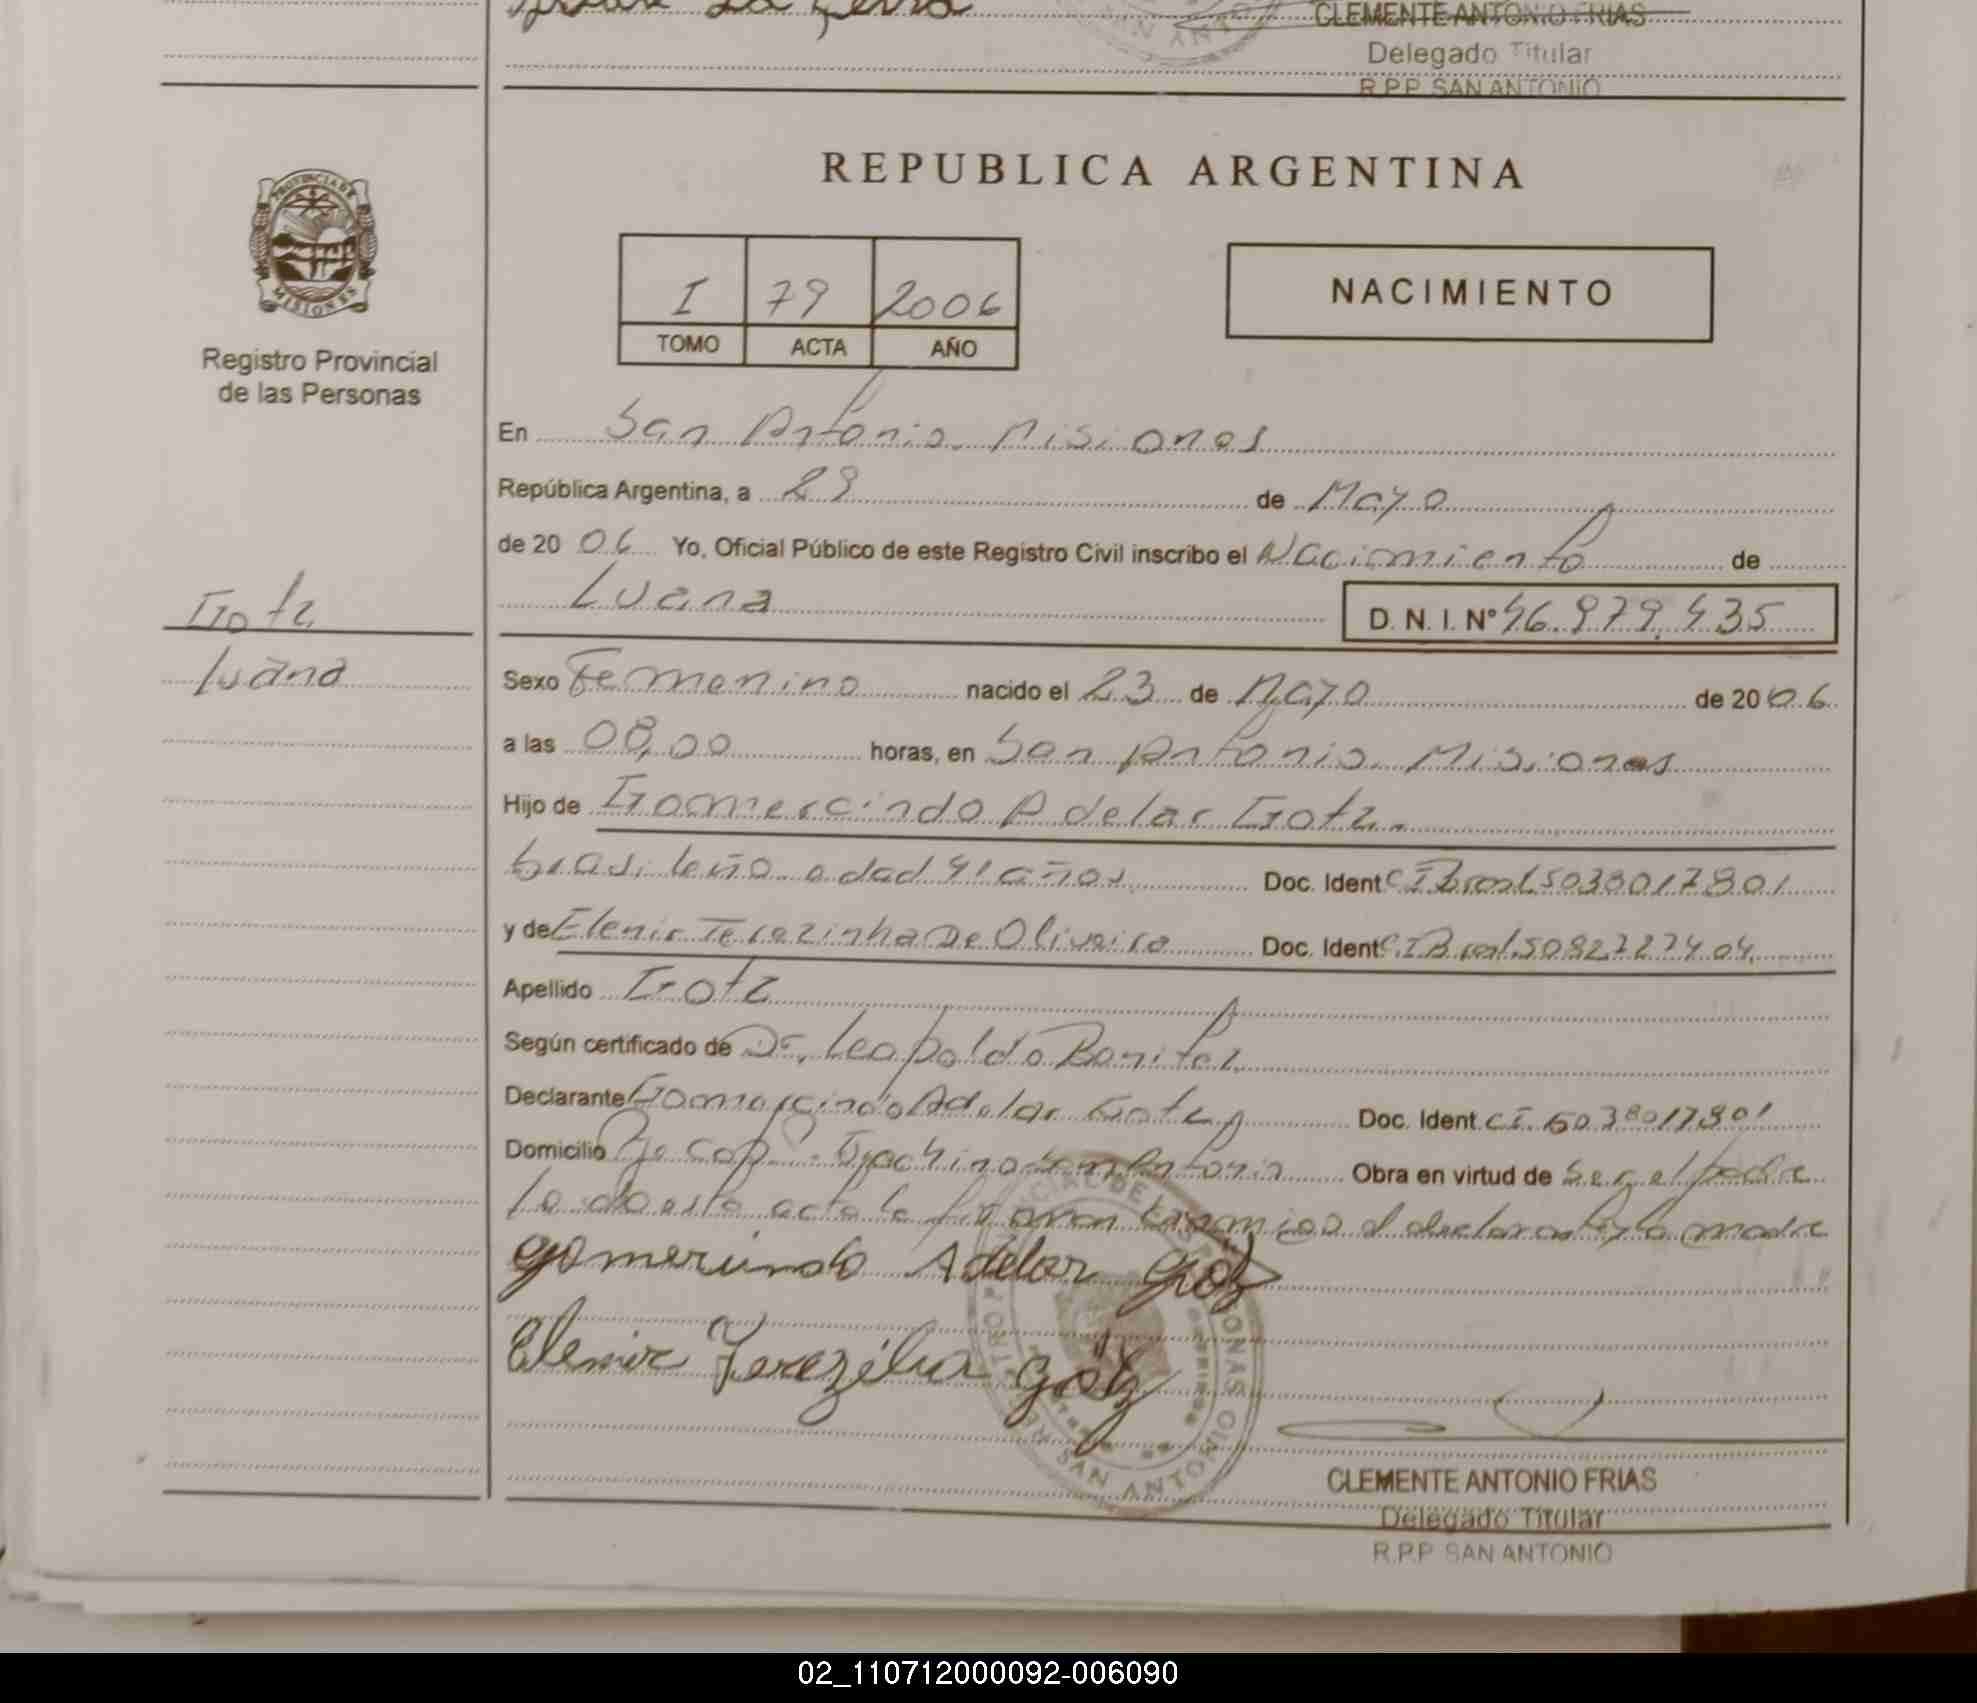 CLEMENTE ANTONIO FRIAS
Delegado Titular
R.P.P. SAN ANTONIO
PROVINCIA DE
MISIONES
Registro Provincial
de las Personas
REPUBLICA ARGENTINA
I 79 2006
TOMO ACTA AÑO
NACIMIENTO
En San Antonio. Misiones
República Argentina, a 29 de Mayo
de 20 06 Yo, Oficial Público de este Registro Civil inscribo el Nacimiento de
Luana D. N. I. Nº 46.979.435
Gotz
Luana
Sexo Femenino nacido el 23 de Mayo de 20 06
a las 08,00 horas, en San Antonio. Misiones
Hijo de Gomercindo Adelar Gotz.
brasileño. edad 41 años. Doc. Ident C.I Brasil. 5038017801
y de Elenir Terezinha De Oliveira Doc. Ident C.I Brasil. 5082727404
Apellido Gotz
Según certificado de Dr. Leopoldo Benitez
Declarante Gomercindo Adelar Gotz Doc. Ident. C.I. 5038017801
Domicilio San Antonio Obra en virtud de ser el padre
la de esta acta la firman conmigo el declarante y la madre
Gomercindo Adelar Götz
Elenir Götz
SAN ANTONIO
CLEMENTE ANTONIO FRIAS
Delegado Titular
R.P.P SAN ANTONIO
02_110712000092-006090